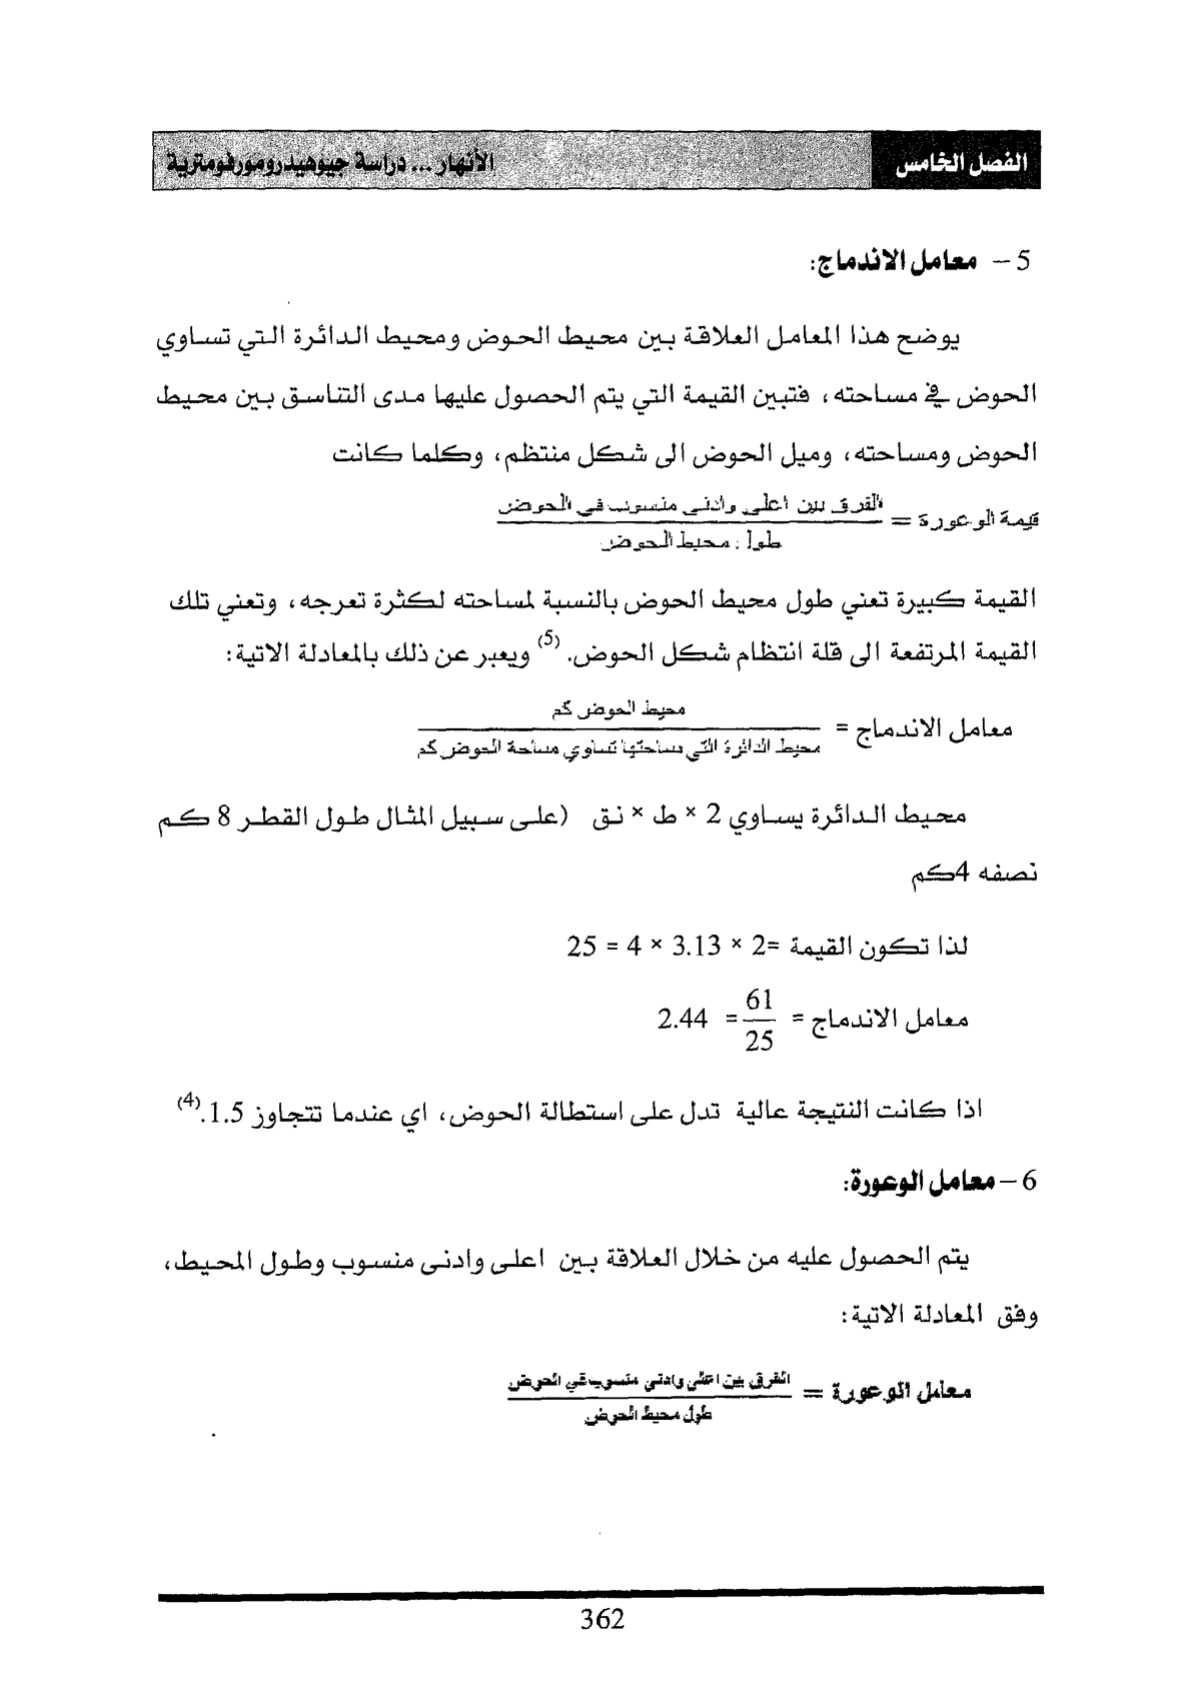 الفصل الخامس
الأنهار ... دراسة جيوهيدرومورفومترية
5 – معامل الاندماج:
يوضح هذا المعامل العلاقة بين محيط الحوض ومحيط الدائرة التي تساوي
الحوض في مساحته، فتبين القيمة التي يتم الحصول عليها مدى التناسق بين محيط
الحوض ومساحته، وميل الحوض الى شكل منتظم، وكلما كانت
قيمة الوعورة = الفرق بين اعلى وادنى منسوب في الحوض
طول محيط الحوض
القيمة كبيرة تعني طول محيط الحوض بالنسبة لمساحته لكثرة تعرجه، وتعني تلك
القيمة المرتفعة الى قلة انتظام شكل الحوض. (5) ويعبر عن ذلك بالمعادلة الاتية:
محيط الحوض كم
معامل الاندماج =
محيط الدائرة التي مساحتها تساوي مساحة الحوض كم
محيط الدائرة يساوي 2 × ط × نق (على سبيل المثال طول القطر 8 كم
نصفه 4كم
لذا تكون القيمة =2 × 3.13 × 4 = 25
معامل الاندماج = 61/25 = 2.44
اذا كانت النتيجة عالية تدل على استطالة الحوض، اي عندما تتجاوز 1.5.(4)
6 – معامل الوعورة:
يتم الحصول عليه من خلال العلاقة بين اعلى وادنى منسوب وطول المحيط،
وفق المعادلة الاتية:
معامل الوعورة = الفرق بين اعلى وادنى منسوب في الحوض
طول محيط الحوض
362